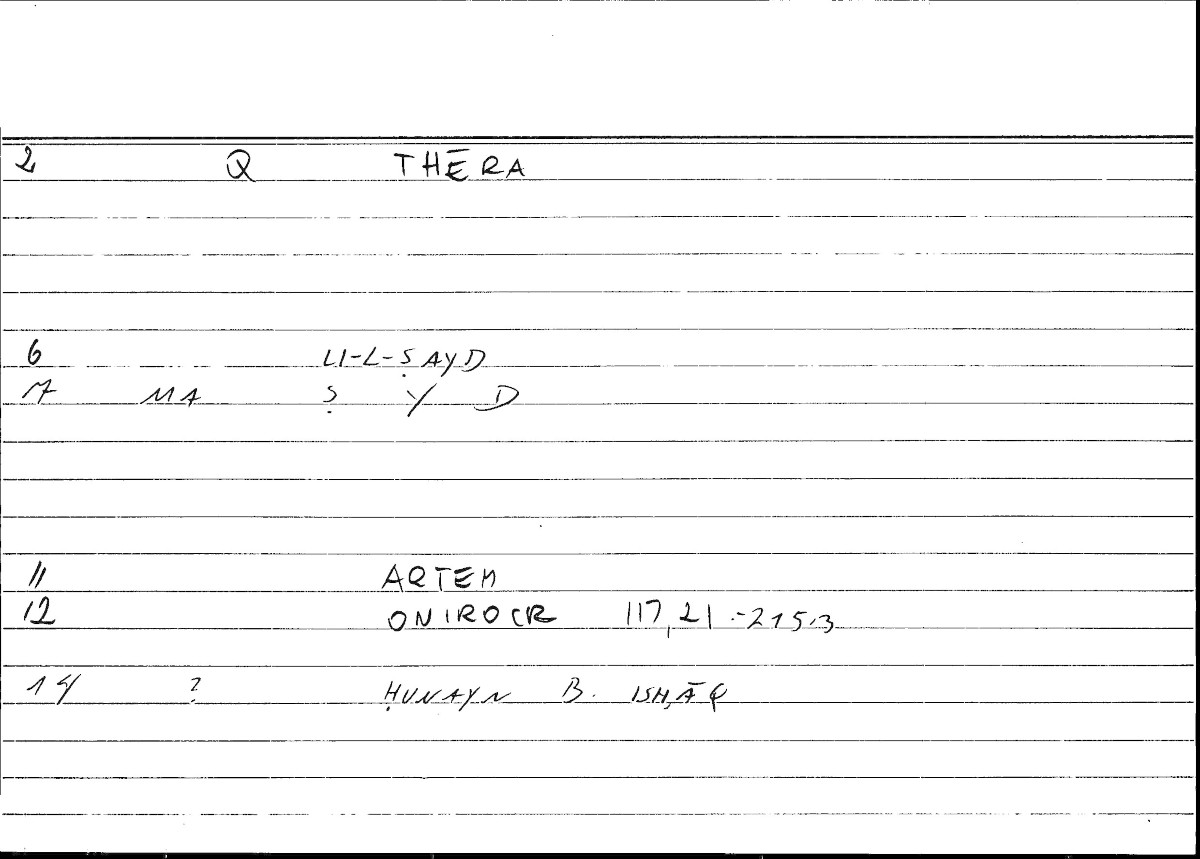 2 Q THĒRA
6 LI-L-ṢAYD
7 MA Ṣ Y D
11 ARTEM
12 ONIROCR 117,21-215,3
14 ? ḤUNAYN B. ISḤĀQ